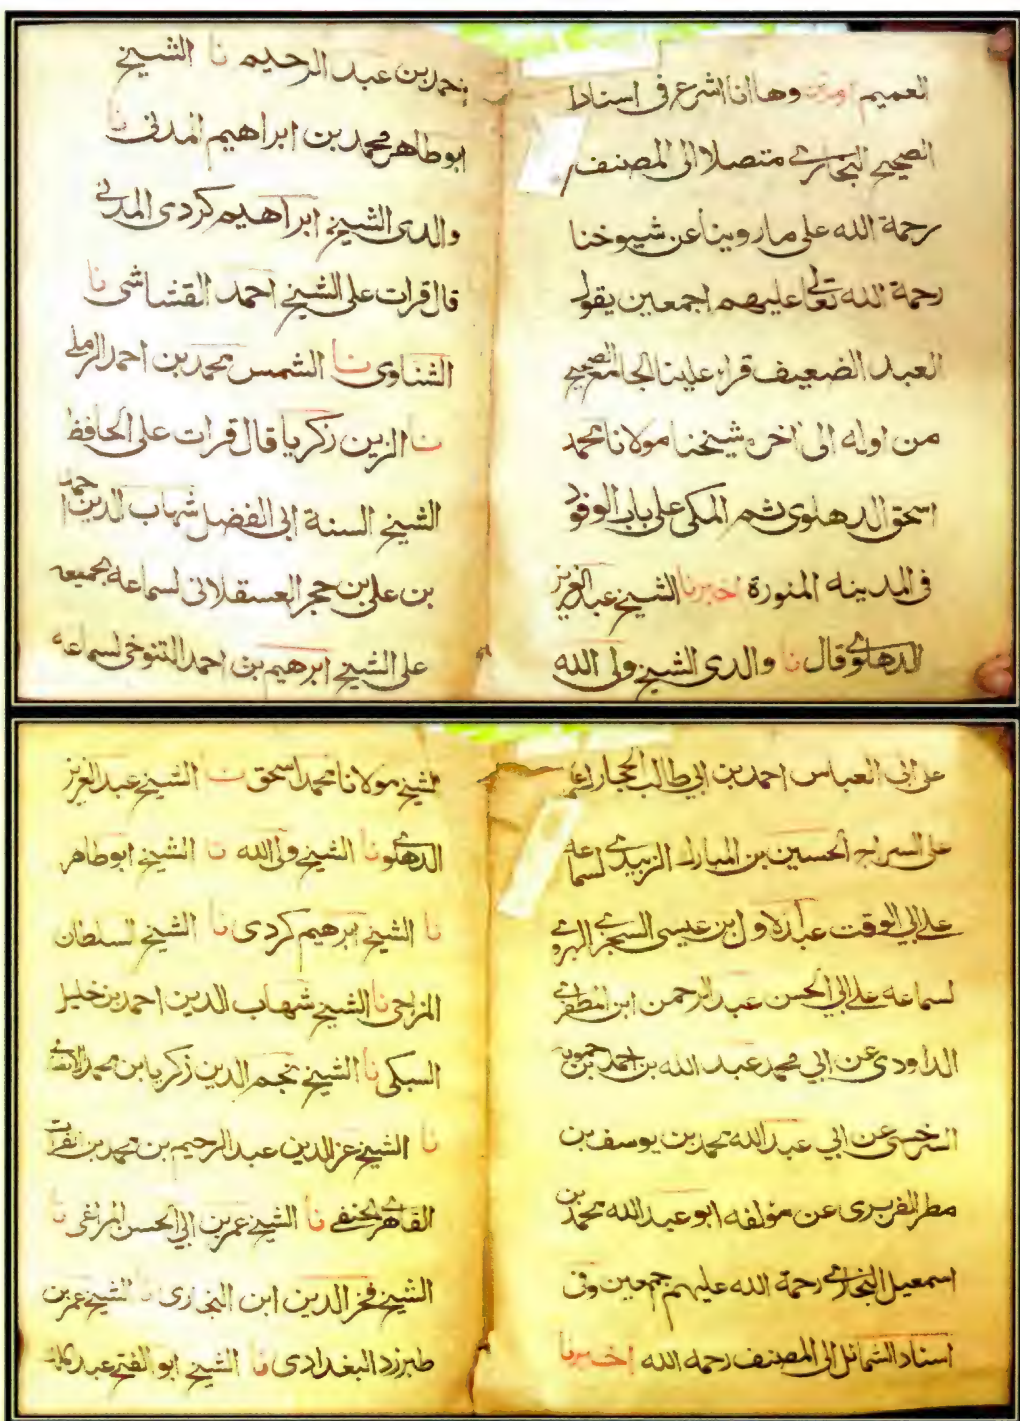 العميم وها انا اشرع فى اسناد
الصحيح البخارى متصلا الى المصنف
رحمة الله على ما روينا عن شيوخنا
رحمة الله تعالى عليهم اجمعين يقول
العبد الضعيف قراء علينا الجامع الصحيح
من اوله الى اخره شيخنا مولانا محمد
اسحق الدهلوى ثم المكى على باب الوفود
فى المدينه المنورة اخبرنا الشيخ عبد العزيز
الدهلوى قال نا والدى الشيخ ولى الله
احمد بن عبد الرحيم نا الشيخ
ابو طاهر محمد بن ابراهيم المدنى نا
والدى الشيخ ابراهيم كردى المدنى
قال قرات على الشيخ احمد القشاشى نا
الشناوى نا الشمس محمد بن احمد الرملى
نا الزين زكريا قال قرات على الحافظ
الشيخ السنة ابى الفضل شهاب الدين احمد
بن على بن حجر العسقلانى لسماعه بجميعه
على الشيخ ابرهيم بن احمد التنوخى لسماعه
على ابى العباس احمد بن ابي طالب الحجار
على السراج الحسين بن المبارك الزبيدى لسماعه
على ابي الوقت عبد الاول ابن عيسى السجزى الهروى
لسماعه على ابي الحسن عبد الرحمن ابن المظفر
الداودى عن ابي محمد عبد الله بن احمد بن حمويه
السرخسى عن ابي عبد الله محمد بن يوسف بن
مطر الفربرى عن مؤلفه ابو عبد الله محمد بن
اسمعيل البخارى رحمة الله عليهم جمعين وفى
اسناد الشمائل الى المصنف رحمه الله اخبرنا
الشيخ مولانا محمد اسحق نا الشيخ عبد العزيز
الدهلوى نا الشيخ ولى الله نا الشيخ ابو طاهر
نا الشيخ ابرهيم كردى نا الشيخ السلطان
المزاحى نا الشيخ شهاب الدين احمد بن خليل
السبكى نا الشيخ نجم الدين زكريا بن محمد
نا الشيخ عز الدين عبد الرحيم بن محمد بن فرات
القاهرى الحنفى نا الشيخ عمر بن ابي الحسن المراغى نا
الشيخ فخر الدين ابن البخارى نا الشيخ عمر بن
طبرزد البغدادى نا الشيخ ابو الفتح عبد الملك